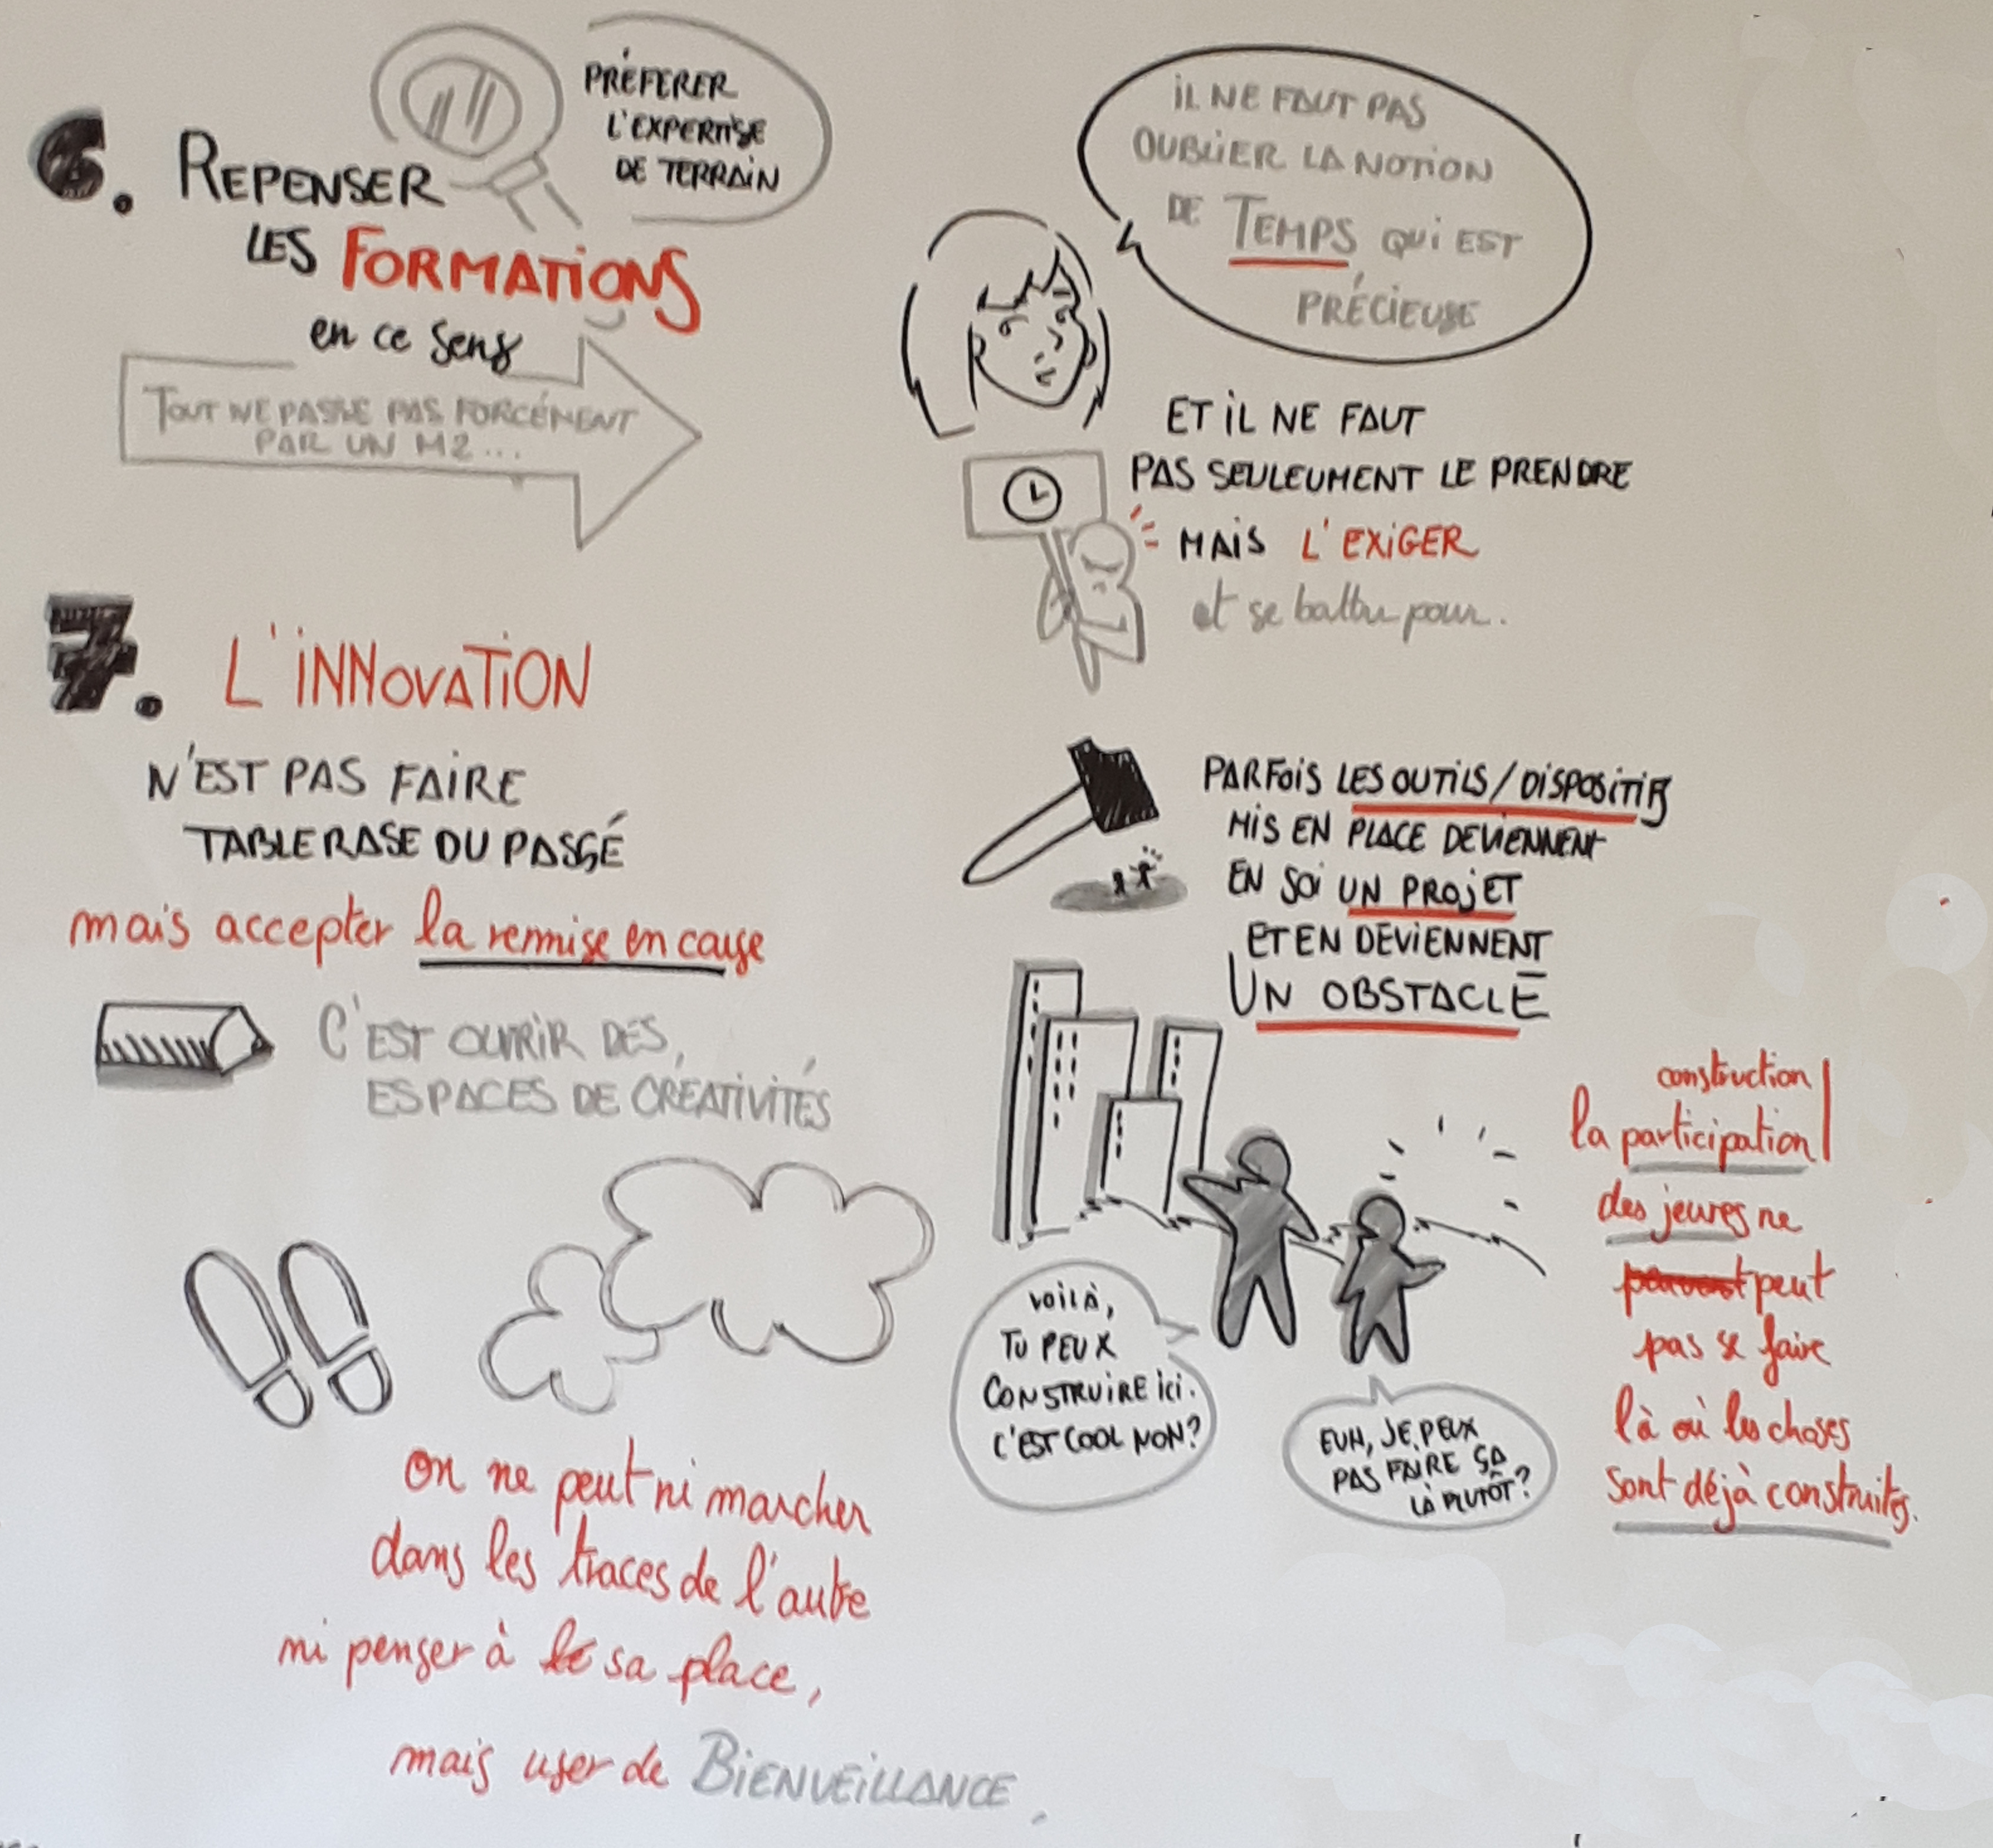 6. REPENSER
LES FORMATIONS
en ce sens
PRÉFERER
L'EXPERTISE
DE TERRAIN
TOUT NE PASSE PAS FORCÉMENT
PAR UN M2...
7. L'INNOVATION
N'EST PAS FAIRE
TABLE RASE DU PASSÉ
mais accepter la remise en cause
C'EST OUVRIR DES
ESPACES DE CRÉATIVITÉS
on ne peut ni marcher
dans les traces de l'autre
ni penser à sa place,
mais user de BIENVEILLANCE.
IL NE FAUT PAS
OUBLIER LA NOTION
DE TEMPS QUI EST
PRÉCIEUSE
ET IL NE FAUT
PAS SEULEUMENT LE PRENDRE
MAIS L'EXIGER
et se battre pour.
PARFOIS LES OUTILS/DISPOSITIFS
MIS EN PLACE DEVIENNENT
EN SOI UN PROJET
ET EN DEVIENNENT
UN OBSTACLE
VOILÀ,
TU PEUX
CONSTRUIRE ICI.
C'EST COOL NON?
EUH, JE PEUX
PAS FAIRE ÇA
LÀ PLUTÔT?
construction
la participation
des jeunes ne
peuvent peut
pas se faire
là où les choses
sont déjà construites.